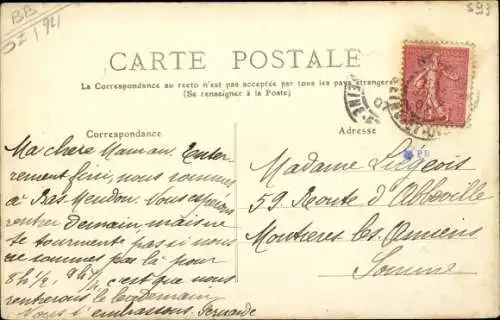 BB
593
CARTE POSTALE
La Correspondance au recto n'est pas acceptée par tous les pays étrangers
(Se renseigner à la Poste)
Correspondance
Adresse
Ma chère Maman. Enter-
rement fini, nous sommes
à Bas-Meudon. Nous espérons
rentrer Demain, mais ne
te tourmente pas si nous
ne sommes pas là pour
8h½, 9h¼, c'est que nous
rentrerons le lendemain
Vous embrassons. Fernande
Madame Liégeois
59. Route d'Abbeville
Montières les Amiens
Somme